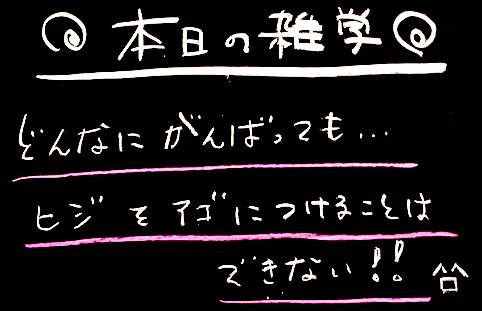 本日の雑学
どんなにがんばっても…
ヒジをアゴにつけることは
できない!!